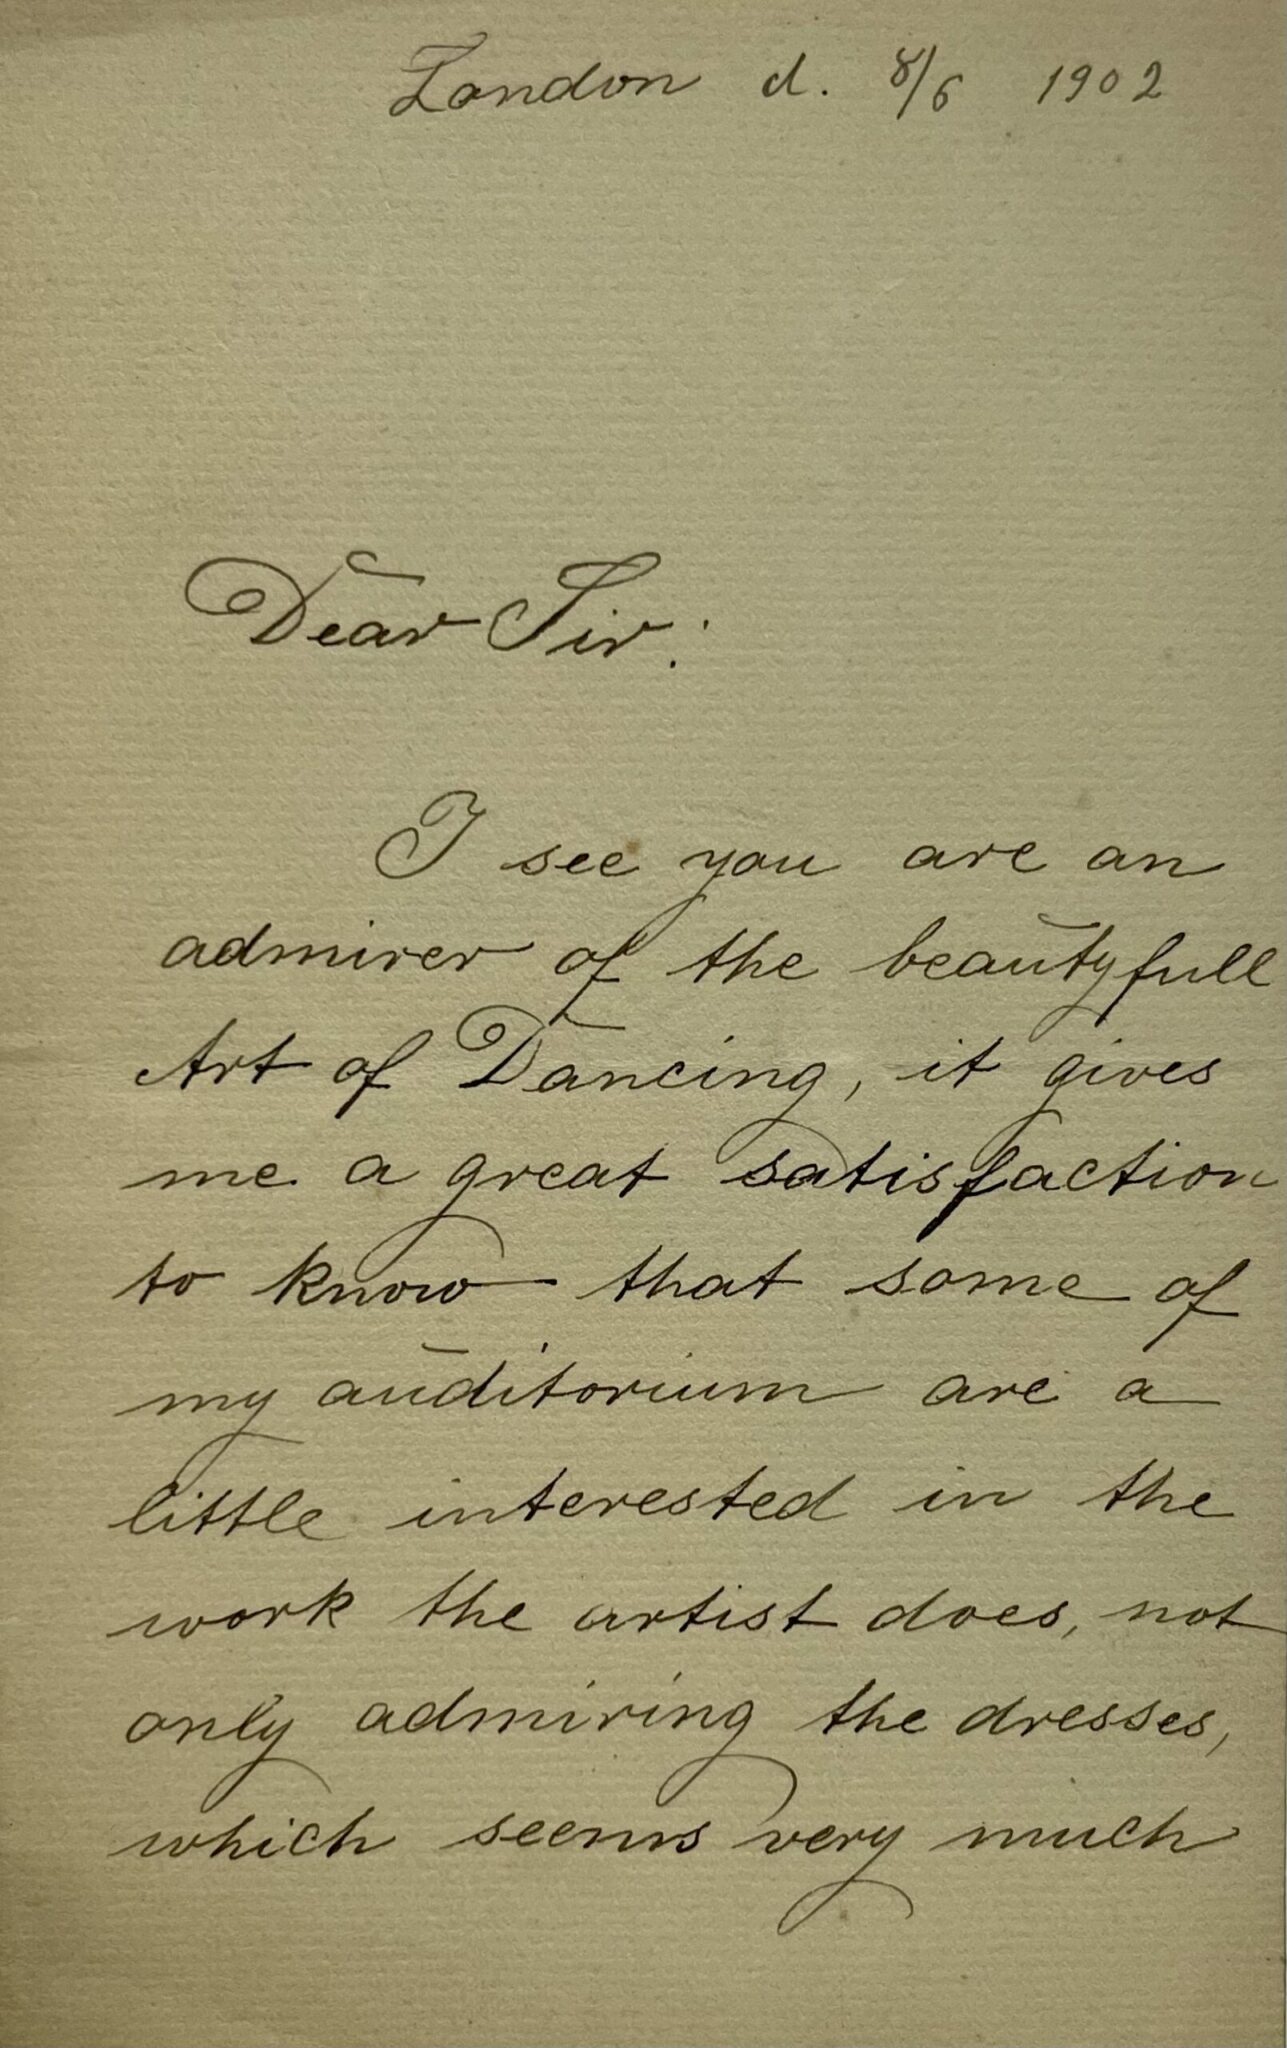 London d. 8/6 1902
Dear Sir:
I see you are an
admirer of the beautyfull
Art of Dancing, it gives
me a great satisfaction
to know that some of
my auditorium are a
little interested in the
work the artist does, not
only admiring the dresses,
which seems very much